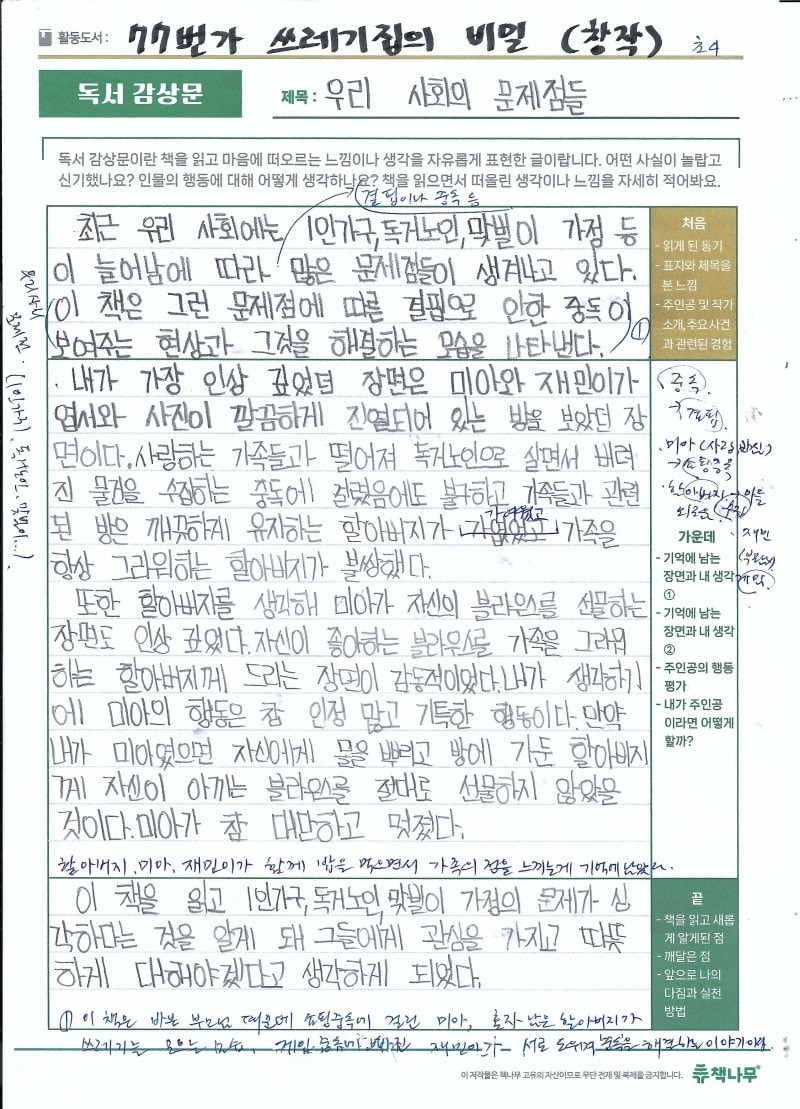 활동도서 : 77번가 쓰레기집의 비밀 (창작) 초4
독서 감상문
제목 : 우리 사회의 문제점들
독서 감상문이란 책을 읽고 마음에 떠오르는 느낌이나 생각을 자유롭게 표현한 글이랍니다. 어떤 사실이 놀랍고
신기했나요? 인물의 행동에 대해 어떻게 생각하나요? 책을 읽으면서 떠올린 생각이나 느낌을 자세히 적어봐요.
결핍이나 중독 등
최근 우리 사회에는 1인가구, 독거노인, 맞벌이 가정 등
이 늘어남에 따라 많은 문제점들이 생겨나고 있다.
(이 책은 그런 문제점에 따른 결핍으로 인한 중독이
보여주는 현상과 그것을 해결하는 모습을 나타낸다.) ①
처음
- 읽게 된 동기
- 표지와 제목을
본 느낌
- 주인공 및 작가
소개, 주요사건
과 관련된 경험
내가 가장 인상 깊었던 장면은 미아와 재민이가
엽서와 사진이 깔끔하게 진열되어 있는 방을 보았던 장
면이다. 사랑하는 가족들과 떨어져 독거노인으로 살면서 버려
진 물건을 수집하는 중독에 걸렸음에도 불구하고 가족들과 관련
가여웠고
된 방은 깨끗하게 유지하는 할아버지가 가엾었고 가족을
항상 그리워하는 할아버지가 불쌍했다.
또한 할아버지를 생각해 미아가 자신의 블라우스를 선물하는
장면도 인상 깊었다. 자신이 좋아하는 블라우스를 가족을 그리워
하는 할아버지께 드리는 장면이 감동적이었다. 내가 생각하기
에 미아의 행동은 참 인정 많고 기특한 행동이다. 만약
내가 미아였으면 자신에게 물을 뿌리고 방에 가둔 할아버지
께 자신이 아끼는 블라우스를 절대로 선물하지 않았을
것이다. 미아가 참 대단하고 멋졌다.
할아버지, 미아, 재민이가 함께 밥을 먹으면서 가족의 정을 느끼는게 기억에 남았다.
중독
결핍
미아(사랑,
쇼핑중독
할아버지
외로움
재민
가운데
- 기억에 남는
장면과 내 생각
①
- 기억에 남는
장면과 내 생각
②
- 주인공의 행동
평가
- 내가 주인공
이라면 어떻게
할까?
이 책을 읽고 1인가구, 독거노인, 맞벌이 가정의 문제가 심
각하다는 것을 알게 돼 그들에게 관심을 가지고 따뜻
하게 대해야겠다고 생각하게 되었다.
끝
- 책을 읽고 새롭
게 알게된 점
- 깨달은 점
- 앞으로 나의
다짐과 실천
방법
① 이 책은 바쁜 부모님 때문에 쇼핑중독에 걸린 미아, 혼자 남은 할아버지가
쓰레기를 모으는 게임 중독에 빠진 재민이가 서로 도우며 중독을 해결하는 이야기이다.
이 저작물은 책나무 고유의 자산이므로 무단 전재 및 복제를 금지합니다.
책나무